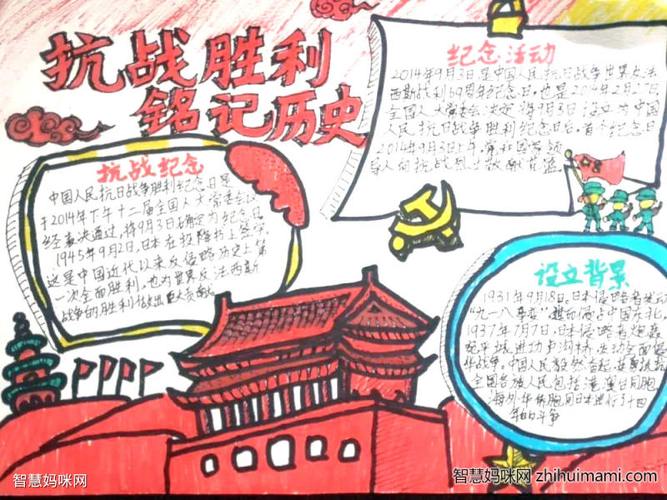 抗战胜利
铭记历史
纪念活动
2014年9月3日是中国人民抗日战争暨世界反法
西斯战利69周年纪念日。也是2014年2月27日
全国人大常委会决定将9月3日设立为中国
人民抗日战争胜利纪念日后,首个纪念日
2014年9月3日上午,党和国家领
导人向抗战烈士敬献花篮
抗战纪念
中国人民抗日战争胜利纪念日是
于2014年下午十二届全国人大常委会
经表决通过,将9月3日确定为纪念日
1945年9月2日,日本在投降书上签字
这是中国近代以来反侵略历史上第
一次全面胜利,也为世界反法西斯
战争的胜利做出巨大贡献
设立背景
1931年9月18日,日本侵略者发动
"九一八事变",占中国东北。
1937年7月7日,日本侵略者炮轰
宛平城进攻卢沟桥,发动全面侵
华战争。中国人民毅然奋起,
全国各族人民包括港澳台同胞
海外华侨同日本进行了十四
年的斗争
智慧妈咪网
智慧妈咪网 zhihuimami.com